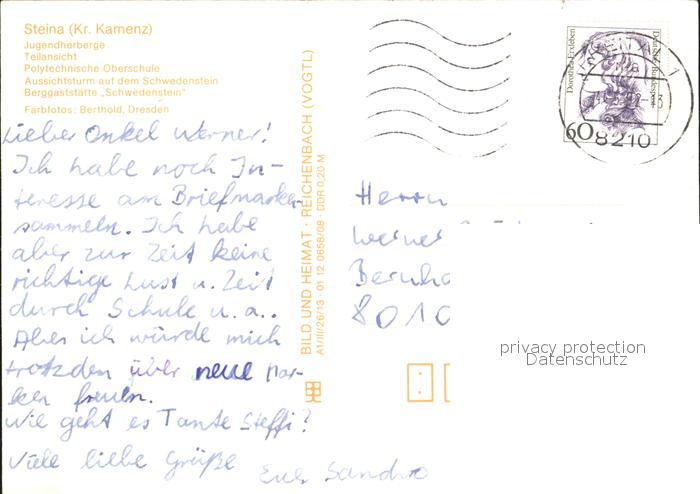 Steina (Kr. Kamenz)
Jugendherberge
Teilansicht
Polytechnische Oberschule
Aussichtsturm auf dem Schwedenstein
Berggaststätte „Schwedenstein“
Farbfotos: Berthold, Dresden
Lieber Onkel Werner!
Ich habe noch In-
teresse am Briefmarken-
sammeln. Ich habe
aber zur Zeit keine
richtige Lust u. Zeit
durch Schule u. a..
Aber ich würde mich
trotzden über neue Mar-
ken freuen.
Wie geht es Tante Steffi?
Viele liebe Grüße
Euer Sandro
BILD UND HEIMAT · REICHENBACH (VOGTL)
A1/III/26/13 · 01 12 0658/08 · DDR 0,20 M
Dorothea Erxleben
Deutsche Bundespost
60
8210
Herrn
Werner
8010
privacy protection
Datenschutz